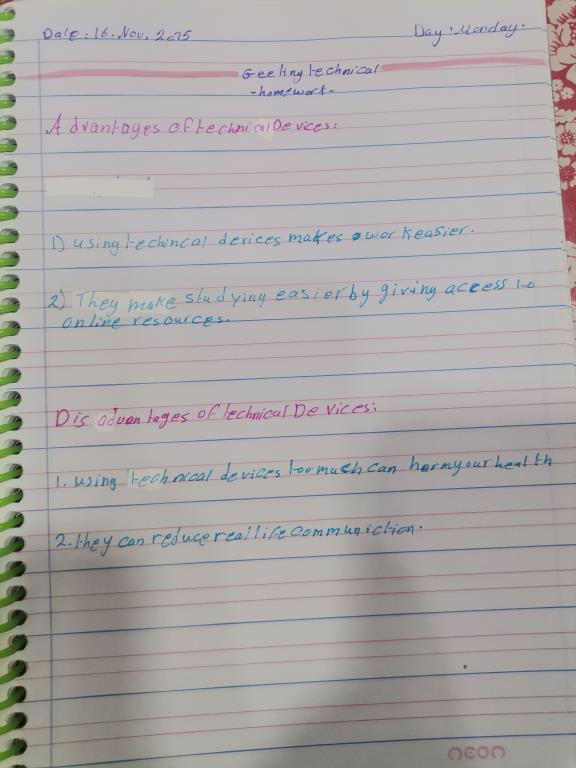 Date: 16. Nov. 2025
Day: Monday.
Geeting technical
-homework-
Advantages of technical Devices:
1) using techincal devices makes work easier.
2) They make studying easier by giving access to
online resources.
Disadvantages of technical Devices:
1. using technical devices too much can harm your health
2. they can reduce real life communiction.
neon